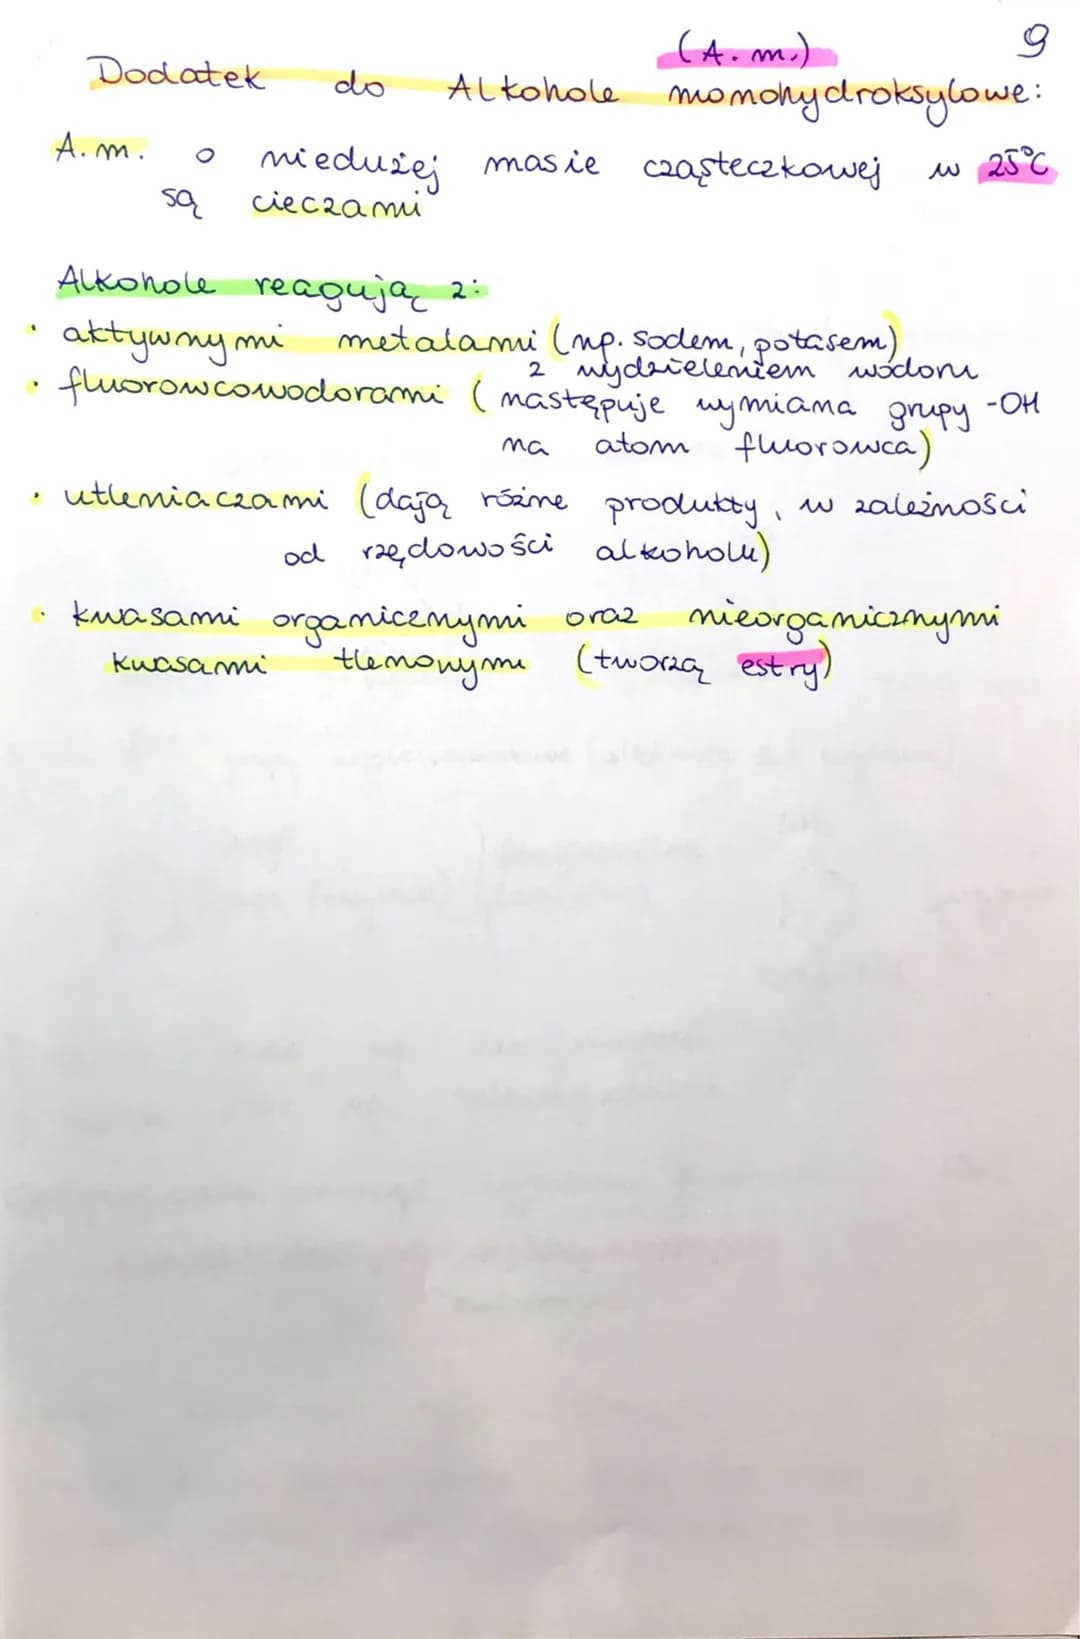 (A. m.) 9
Dodatek do Alkohole monohydroksylowe:
A. m. o niedużej masie cząsteczkowej w 25°C
są cieczami
Alkohole reagują z:
• aktywnymi metalami (np. sodem, potasem)
z wydzieleniem wodoru
• fluorowcowodorami (następuje wymiana grupy -OH
na atom fluorowca)
• utleniaczami (dają różne produkty, w zależności
od rzędowości alkoholu)
• kwasami organicznymi oraz nieorganicznymi
kwasami tlenowymi (tworzą estry)